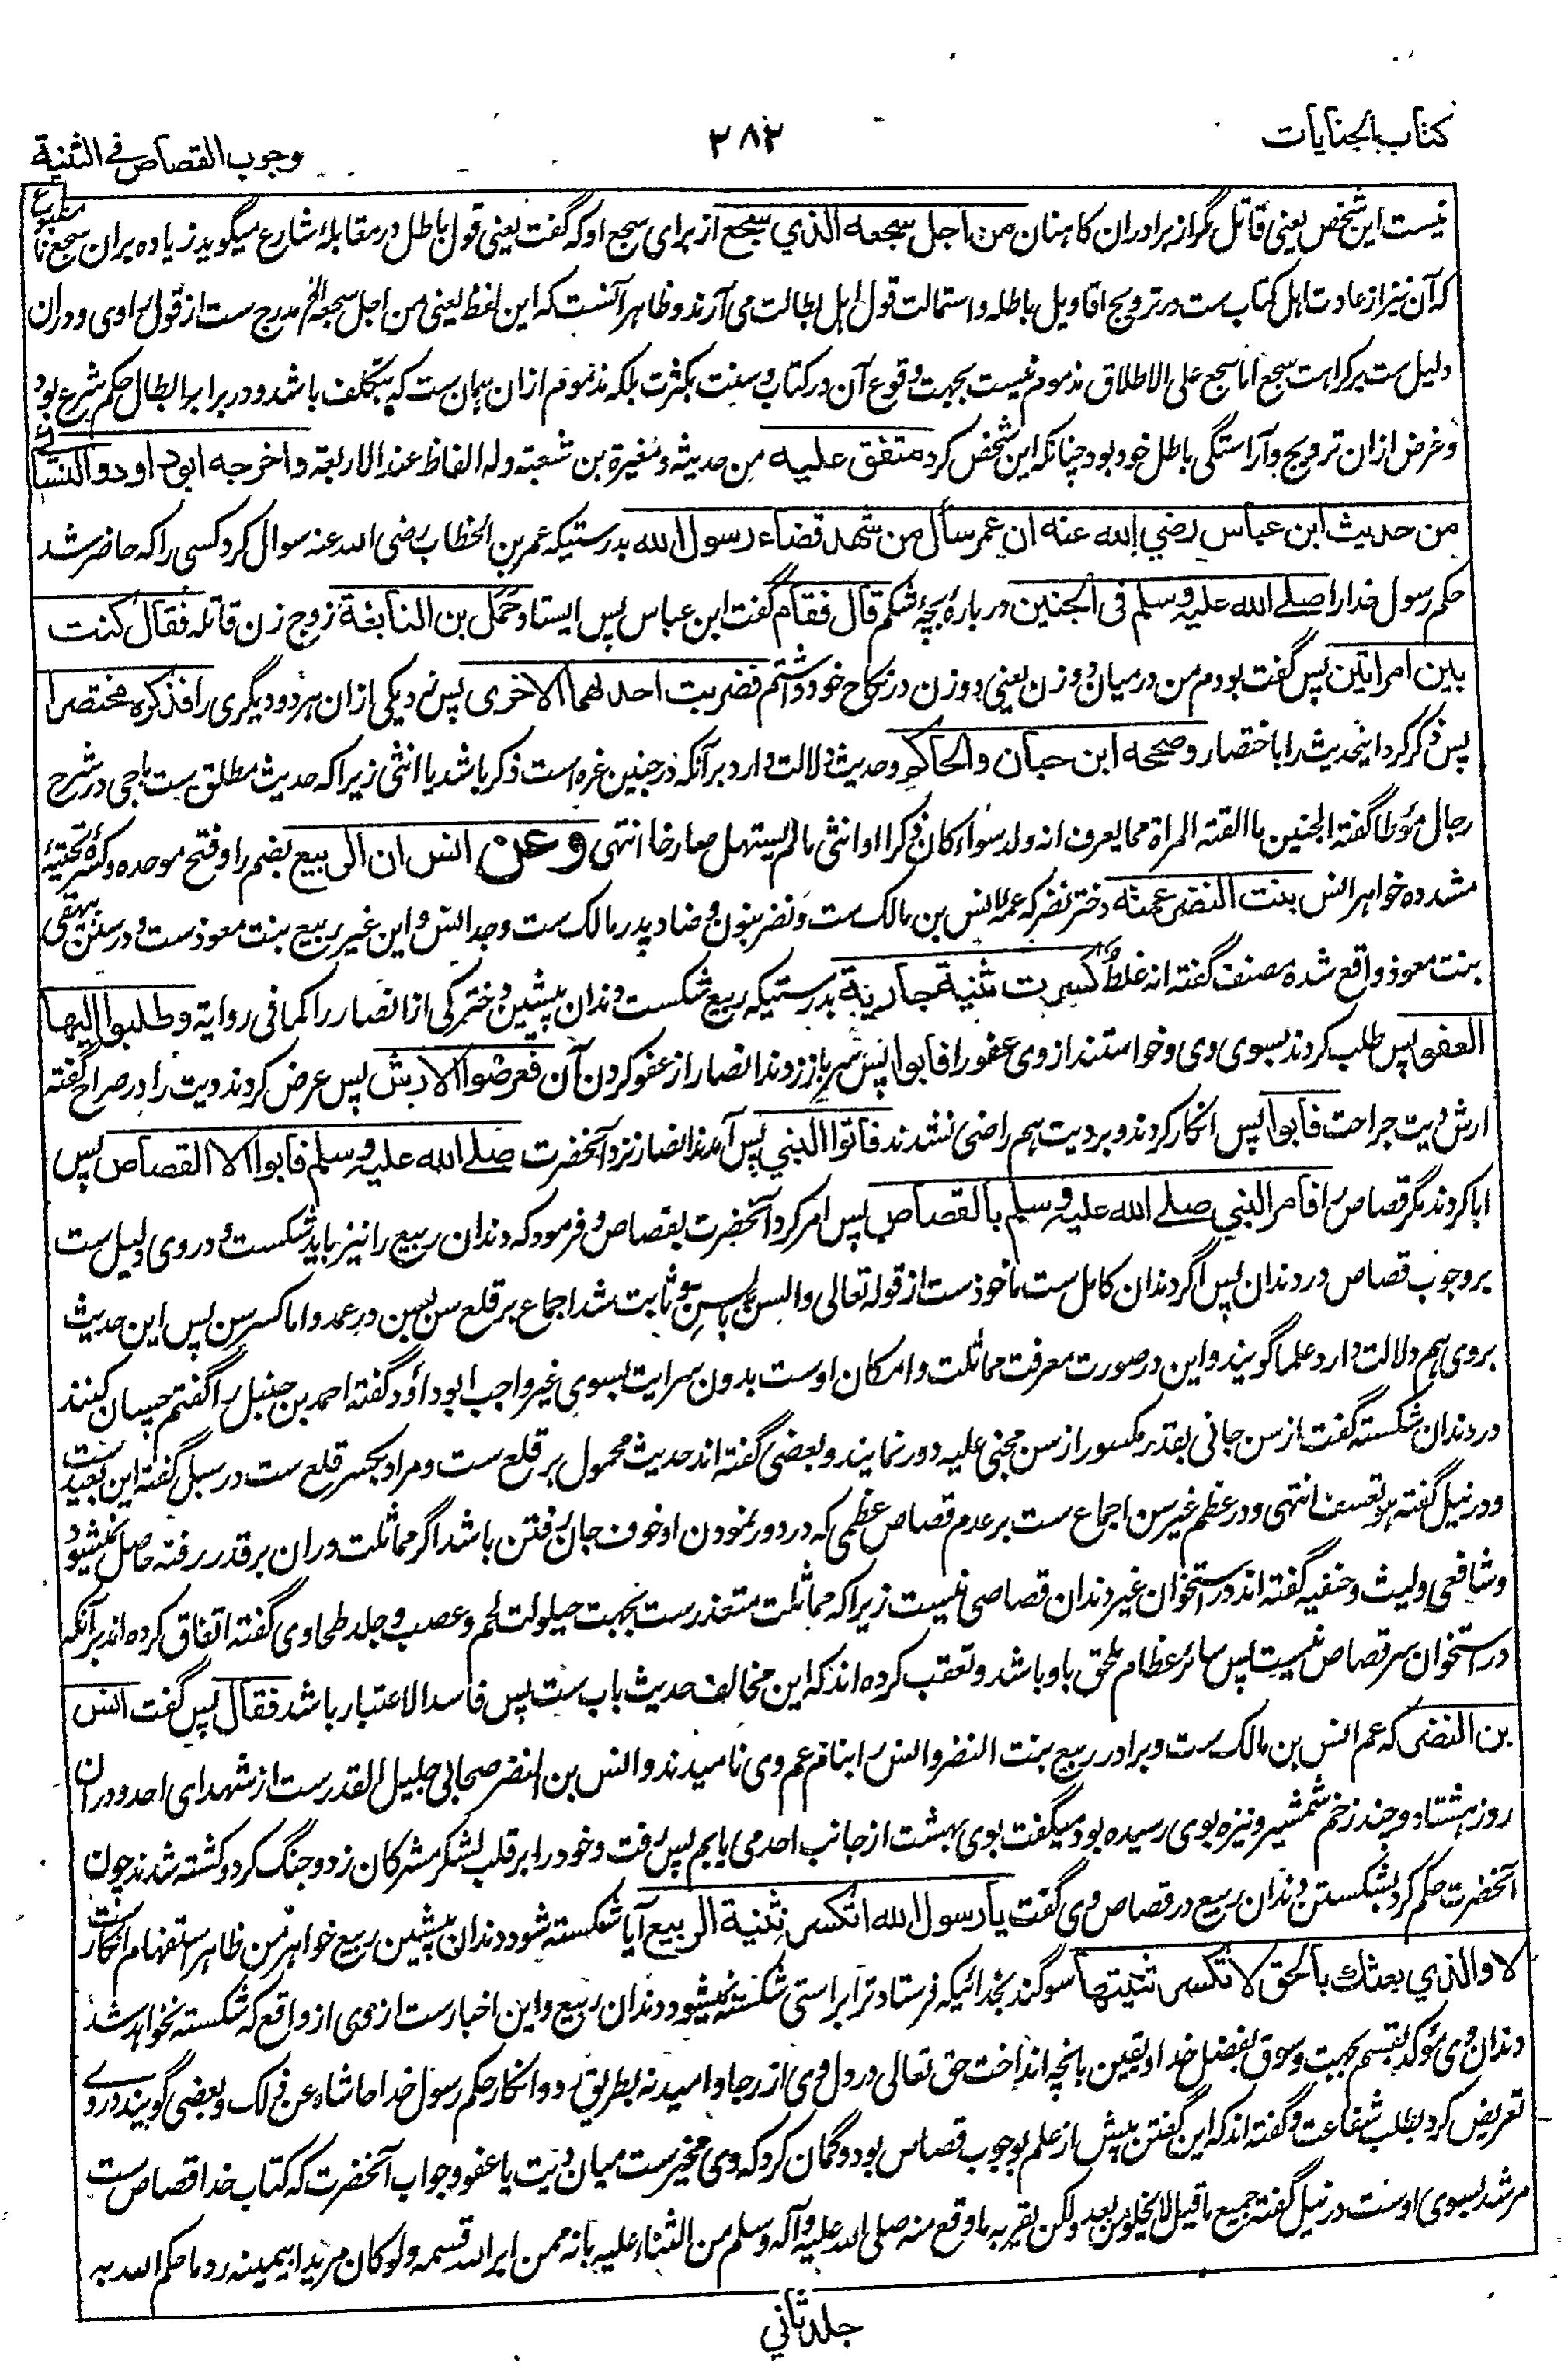 کتاب الجنایات
۳۸۳
وجوب القصاص فے الثنیة
نیست این شخص یعنی قاتل مگر از برادران کاهنان من اجل سجعه الذي سجع از برای سجع او که گفت یعنی قول باطل در مقابلهٔ شارع میگوید زیاده بران سجع نا مطبوع
که آن نیز از عادت اهل کتاب ست در ترویج اقاویل باطله و استمالت قول اهل بطالت می آرند و ظاهر آنست که این لفظ یعنی من اجل سجعه الخ مدرج ست از قول راوی و دران
دلیل ست بر کراهت سجع اما سجع علی الاطلاق مذموم نیست بجهت وقوع آن در کتاب و سنت بکثرت بلکه مذموم ازان همان ست که بتکلف باشد و در برابر ابطال حکم شرع بود
و غرض ازان ترویج و آراستگی باطل خود بود چنانکه این شخص کرد متفق علیه من حدیثه و مغیرة بن شعبته وله الفاظ عند الاربعة واخرجه ابو داود والنسائے
من حدیث ابن عباس رضي الله عنه ان عمر سأل من شهد قضاء رسول الله بدرستیکه عمر بن الخطاب رضی الله عنه سوال کرد کسی را که حاضر شد
حکم رسول خدا را صلے الله علیه وسلم فی الجنین در بارهٔ بچهٔ شکم قال فقام گفت ابن عباس پس ایستاد حمل بن النابغة زوج زن قاتله فقال کنت
بین امراتین پس گفت بودم من در میان دو زن یعنی دو زن در نکاح خود داشتم فضربت احدهما الاخری پس زد یکی ازان هر دو دیگری را فذکره مختصرا
پس ذکر کرد اینحدیث را باختصار وصححه ابن حبان والحاکم و حدیث دلالت دارد بر آنکه در جنین غره است ذکر باشد یا انثی زیرا که حدیث مطلق ست باجی در شرح
رجال مؤطا گفته الجنین ما القته المراة مما یعرف انه ولد سواء کان ذکرا او انثی ما لم یستهل صارخا انتهی وعن انس ان الربیع بضم را و فتح موحده و کسرهٔ تحتیهٔ
مشدده خواهر انس بنت النضر عمته دختر نضر که عمهٔ انس بن مالک ست و نضر بنون و ضاد پدر مالک ست و جد انس و این غیر ربیع بنت معوذ ست و در سنن بیهقی
بنت معوذ واقع شده مصنف گفته انه غلط کسرت ثنیة جاریة بدرستیکه ربیع شکست دندان پیشین دخترکی از انصار را کما فی روایة وطلبوا الیها
العفو پس طلب کردند بسوی وی و خواستند از وی عفو را فابوا پس سر باز زدند انصار از عفو کردن آن فعرضوا الارش پس عرض کردند دیت را در صراح گفته
ارش دیت جراحت فابوا پس انکار کردند و بر دیت هم راضی نشدند فاتوا النبي پس آمدند انصار نزد آنحضرت صلے الله علیه وسلم فابوا الا القصاص پس
ابا کردند مگر قصاص را فامر النبي صلے الله علیه وسلم بالقصاص پس امر کرد آنحضرت بقصاص و فرمود که دندان ربیع را نیز باید شکست و در وی دلیل ست
بر وجوب قصاص در دندان پس اگر دندان کامل ست ماخوذ ست از قوله تعالی والسن بالسن و ثابت شد اجماع بر قلع سن بسن در عمد و اما کسر سن پس این حدیث
بروی هم دلالت دارد علما گویند و این در صورت معرفت مماثلت و امکان اوست بدون سرایت بسوی غیر واجب ابوداؤد گفته احمد بن حنبل را گفتم چسان کنند
در دندان شکسته گفت از سن جانی بقدر مکسور از سن مجنی علیه دور نمایند و بعضی گفته اند حدیث محمول بر قلع ست و مراد بکسر قلع ست در سبل گفته این بعید ست
و در نیل گفته هو تعسف انتهی و در عظم غیر سن اجماع ست بر عدم قصاص عظمی که در دور نمودن او خوف جان رفتن باشد اگر مماثلت دران بر قدر رفته حاصل نمیشود
و شافعی و لیث و حنفیه گفته اند در استخوان غیر دندان قصاصی نیست زیرا که مماثلت متعذر ست بجهت حیلولت لحم و عصب و جلد طحاوی گفته اتفاق کرده اند بر آنکه
در استخوان سر قصاص نیست پس سائر عظام ملحق باو باشد و تعقب کرده اند که این مخالف حدیث باب ست پس فاسد الاعتبار باشد فقال پس گفت انس
بن النضر که عم انس بن مالک ست و برادر ربیع بنت النضر و انس را بنام عم وی نامیدند و انس بن النضر صحابی جلیل القدر ست از شهدای احد و دران
روز هشتاد و چند زخم شمشیر و نیزه بوی رسیده بود میگفت بوی بهشت از جانب احد می یابم پس رفت و خود را بر قلب لشکر مشرکان زد و جنگ کرد و کشته شد ند چون
آنحضرت حکم کرد بشکستن دندان ربیع در قصاص وی گفت یا رسول الله اتکسر ثنیة الربیع آیا شکسته شود دندان پیشین ربیع خواهر من ظاهر استفهام انکار ست
لا والذي بعثك بالحق لا تکسر ثنیتها سوگند بخدائیکه فرستاد ترا براستی شکسته نمیشود دندان ربیع و این اخبار ست از وی از واقع که شکسته نخواهد شد
دندان وی مؤکد بقسم بجهت وسوق بفضل خدا و یقین بانچه انداخت حق تعالی در دل وی از رجا و امید نه بطریق رد و انکار حکم رسول خدا حاشاه عن ذلک و بعضی گویند در وے
تعریض کرد بطلب شفاعت و گفته اند که این گفتن پیش از علم بوجوب قصاص بود و گمان کرد که وی مخیر ست میان دیت یا عفو و جواب آنحضرت که کتاب خدا قصاص ست
مرشد بسوی اوست در نیل گفته جمیع ما قیل لا یخلو من بعد ولکن یقربه ما وقع منه صلی الله علیه وآله وسلم من الثناء علیه بانه ممن ابر الله قسمه ولو کان مریدا بیمینه رد ما حکم الله به
جلد ثاني